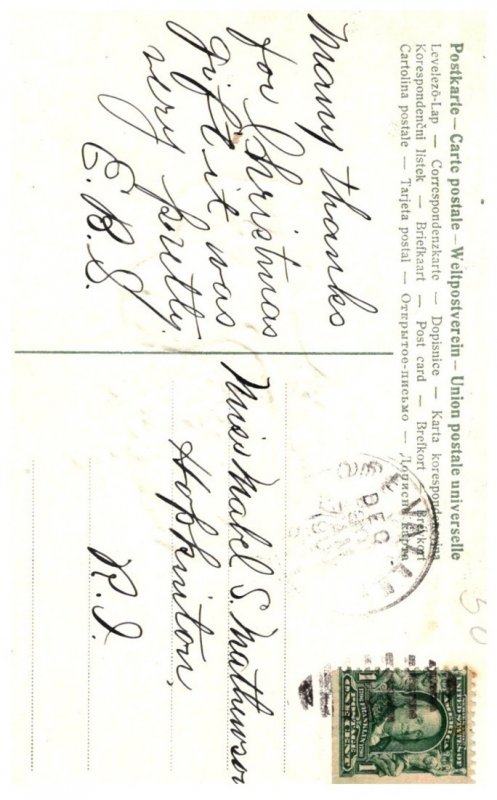 Postkarte — Carte postale — Weltpostverein — Union postale universelle
Levelező-Lap — Correspondenzkarte — Dopisnice — Karta korespondencyjna
Korespondenční lístek — Briefkaart — Post card — Brefkort — Brevkort
Cartolina postale — Tarjeta postal — Открытое-письмо — Дописна карта
Many thanks
for Christmas
gift it was
very pretty.
E. B. S.
DEC
Miss Mabel S. Mathewson
Hopkinton,
R. I.
50
UNITED STATES OF
AMERICA
FRANKLIN
POSTAGE
1 ONE CENT 1